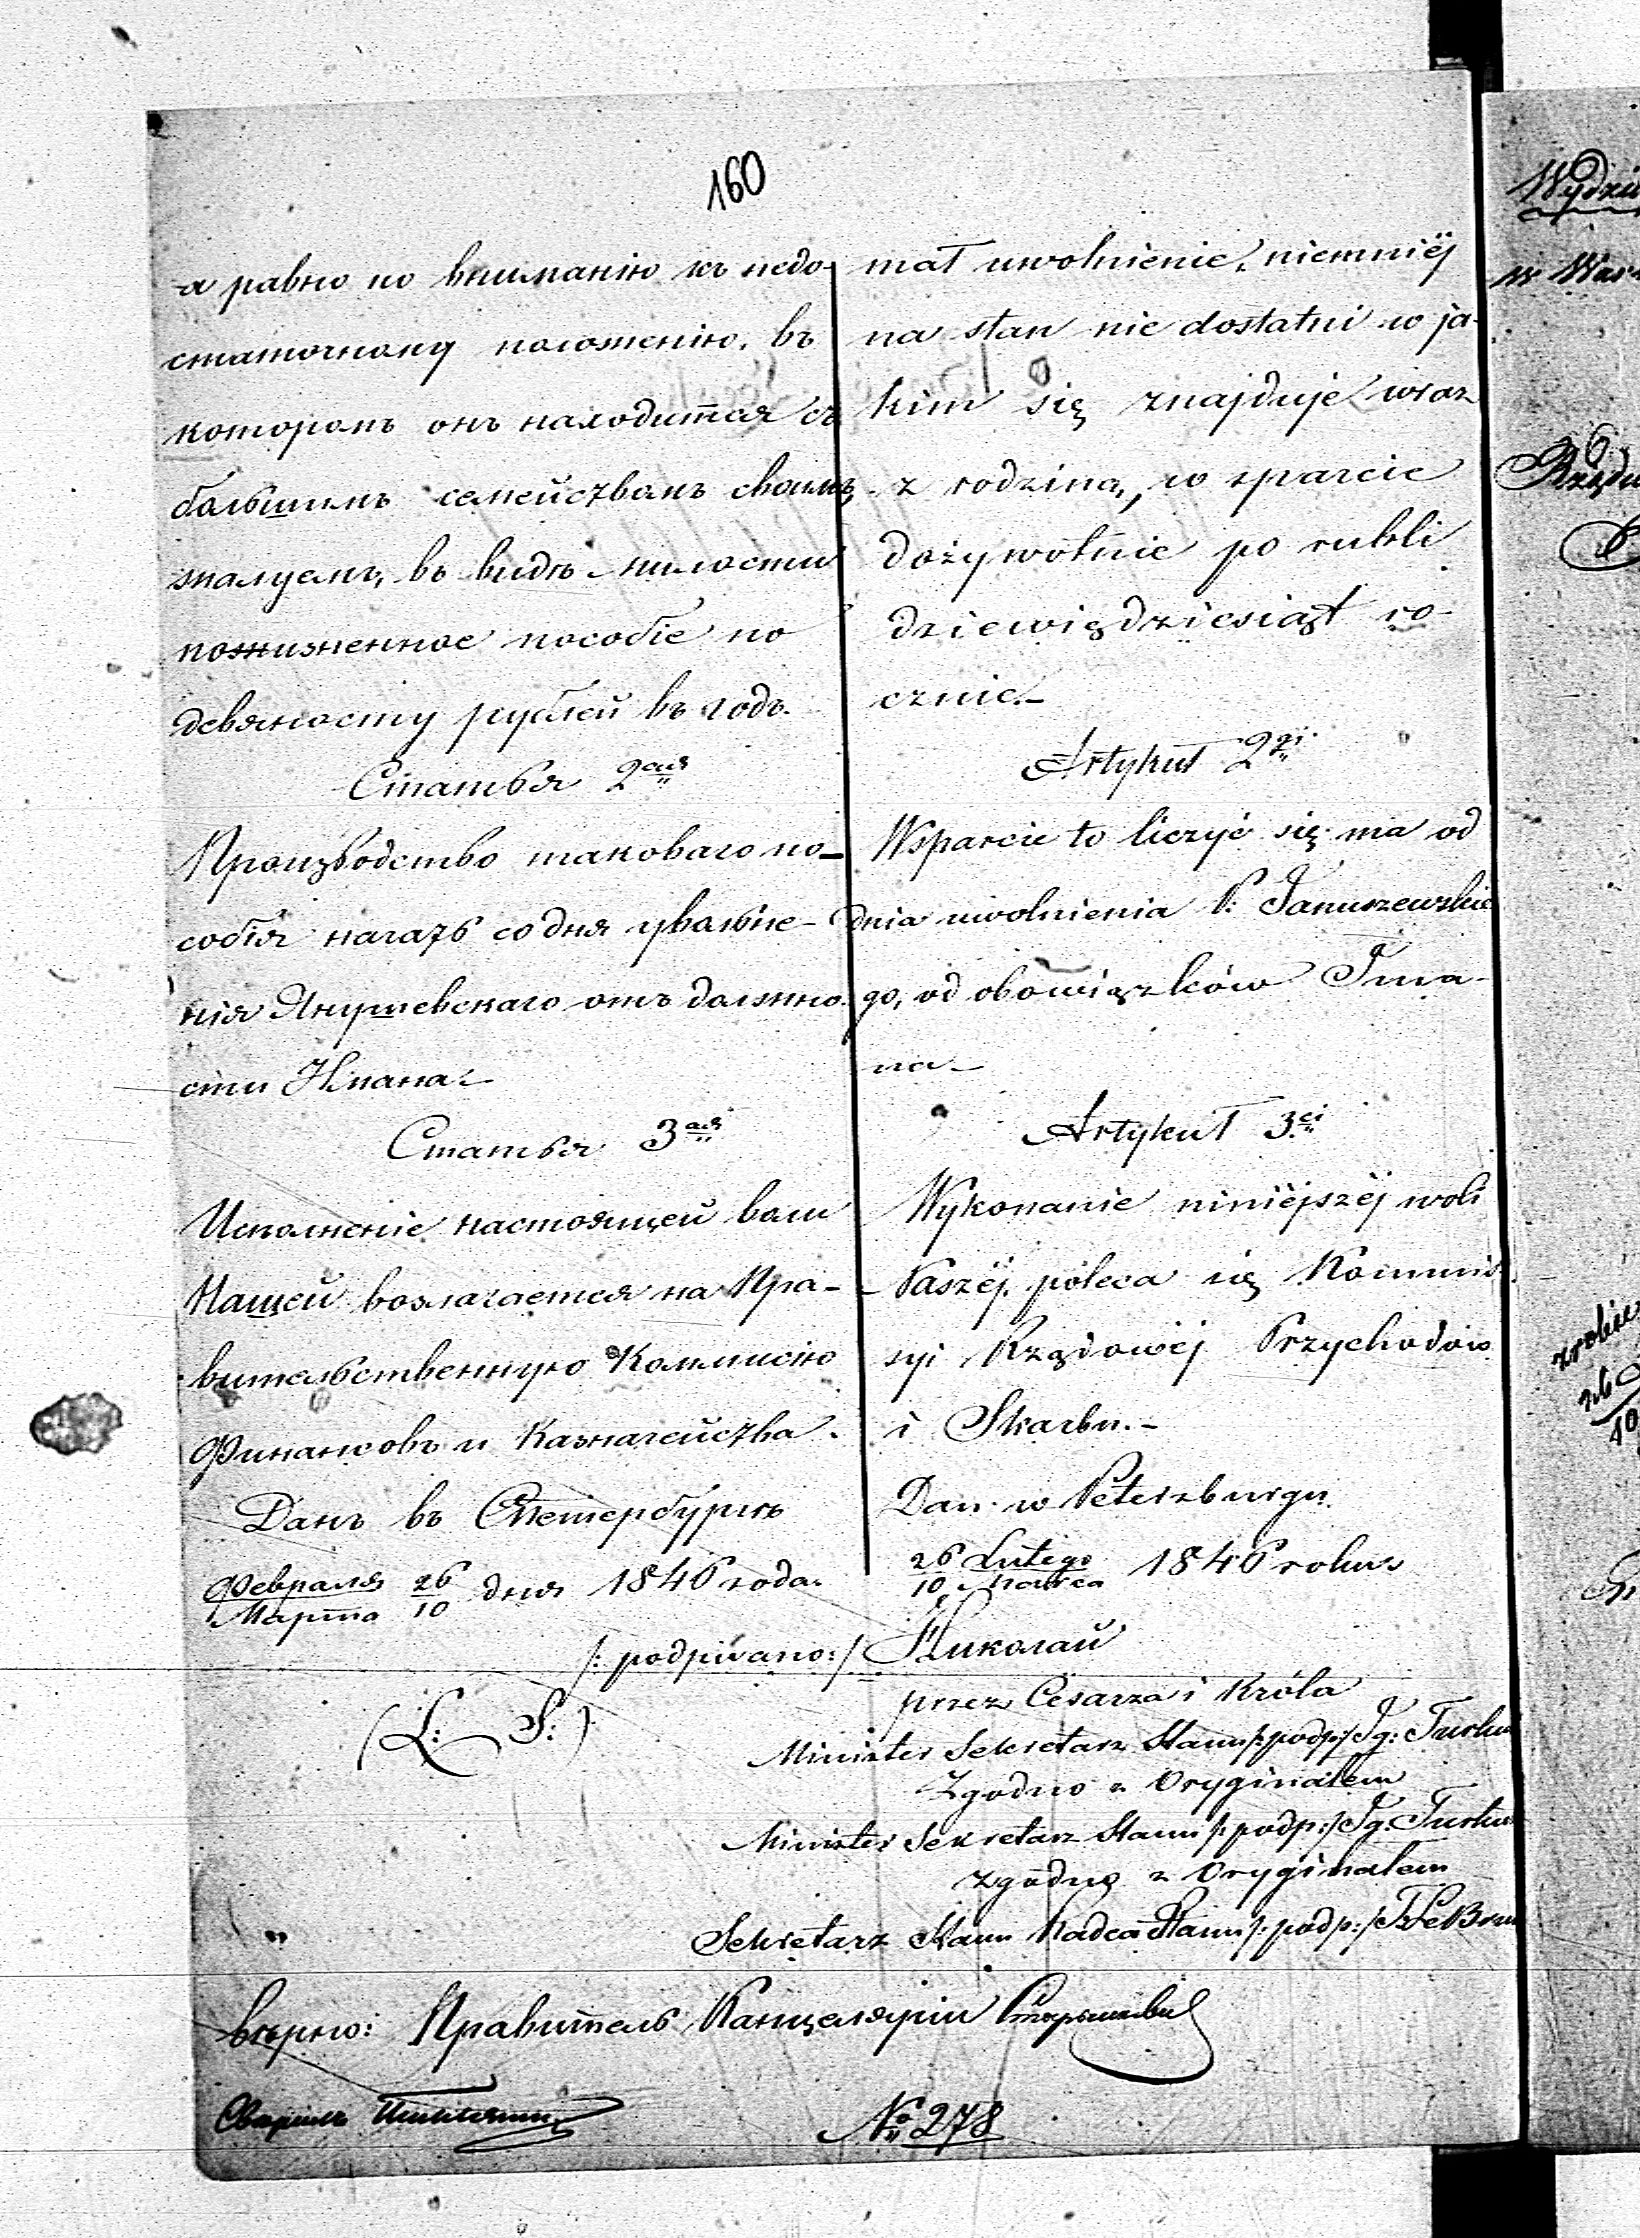 160
а равно по вниманію къ недо-
статочному положенію, въ
которомъ онъ находится съ
большимъ семействомъ своимъ
жалуемъ, въ видѣ милости
пожизненное пособіе по
девяносту рублей въ годъ.
Статья 2ая
Производство таковаго по-
собія начать со дня увольне-
нія Янушевскаго отъ должно-
сти Имана.
Статья 3ая
Исполненіе настоящей воли
Нашей возлагается на Пра-
вительственную Коммисію
Финансовъ и Казначейства.
Данъ въ СПетербургѣ
Февраля 26
Марта 10 дня 1846 года.
mał uwolnienie, niemniéj
na stan nie dostatni w ja-
kim się znajduje wraz
z rodziną, wsparcie
dożywotnie po rubli
dziewięćdziesiąt ro-
cznie.-
Artykuł 2gi
Wsparcie to liczyć się ma od
dnia uwolnienia P. Januszewskie
go, od obowiązków Ima-
na-
Artykuł 3ci
Wykonanie niniéjszéj woli
Naszéj, poleca się Kommis-
syi Rządowéj Przychodów
i Skarbu.-
Dan w Petersburgu
26 Lutego
10 Marca 1846 roku
/: podpisano:/ Николай
(L: S:)
przez Cesarza i Króla
Minister Sekretarz Stanu /: podp:/ Ig: Turkuł
Zgodno z Oryginałem
Minister Sekretarz Stanu /: podp:/ Ig: Turkuł
Zgodno z Oryginałem
Sekretarz Stanu Radca Stanu /: podp:/
вѣрно: Правитель Канцеляріи
Свѣрилъ
№ 278